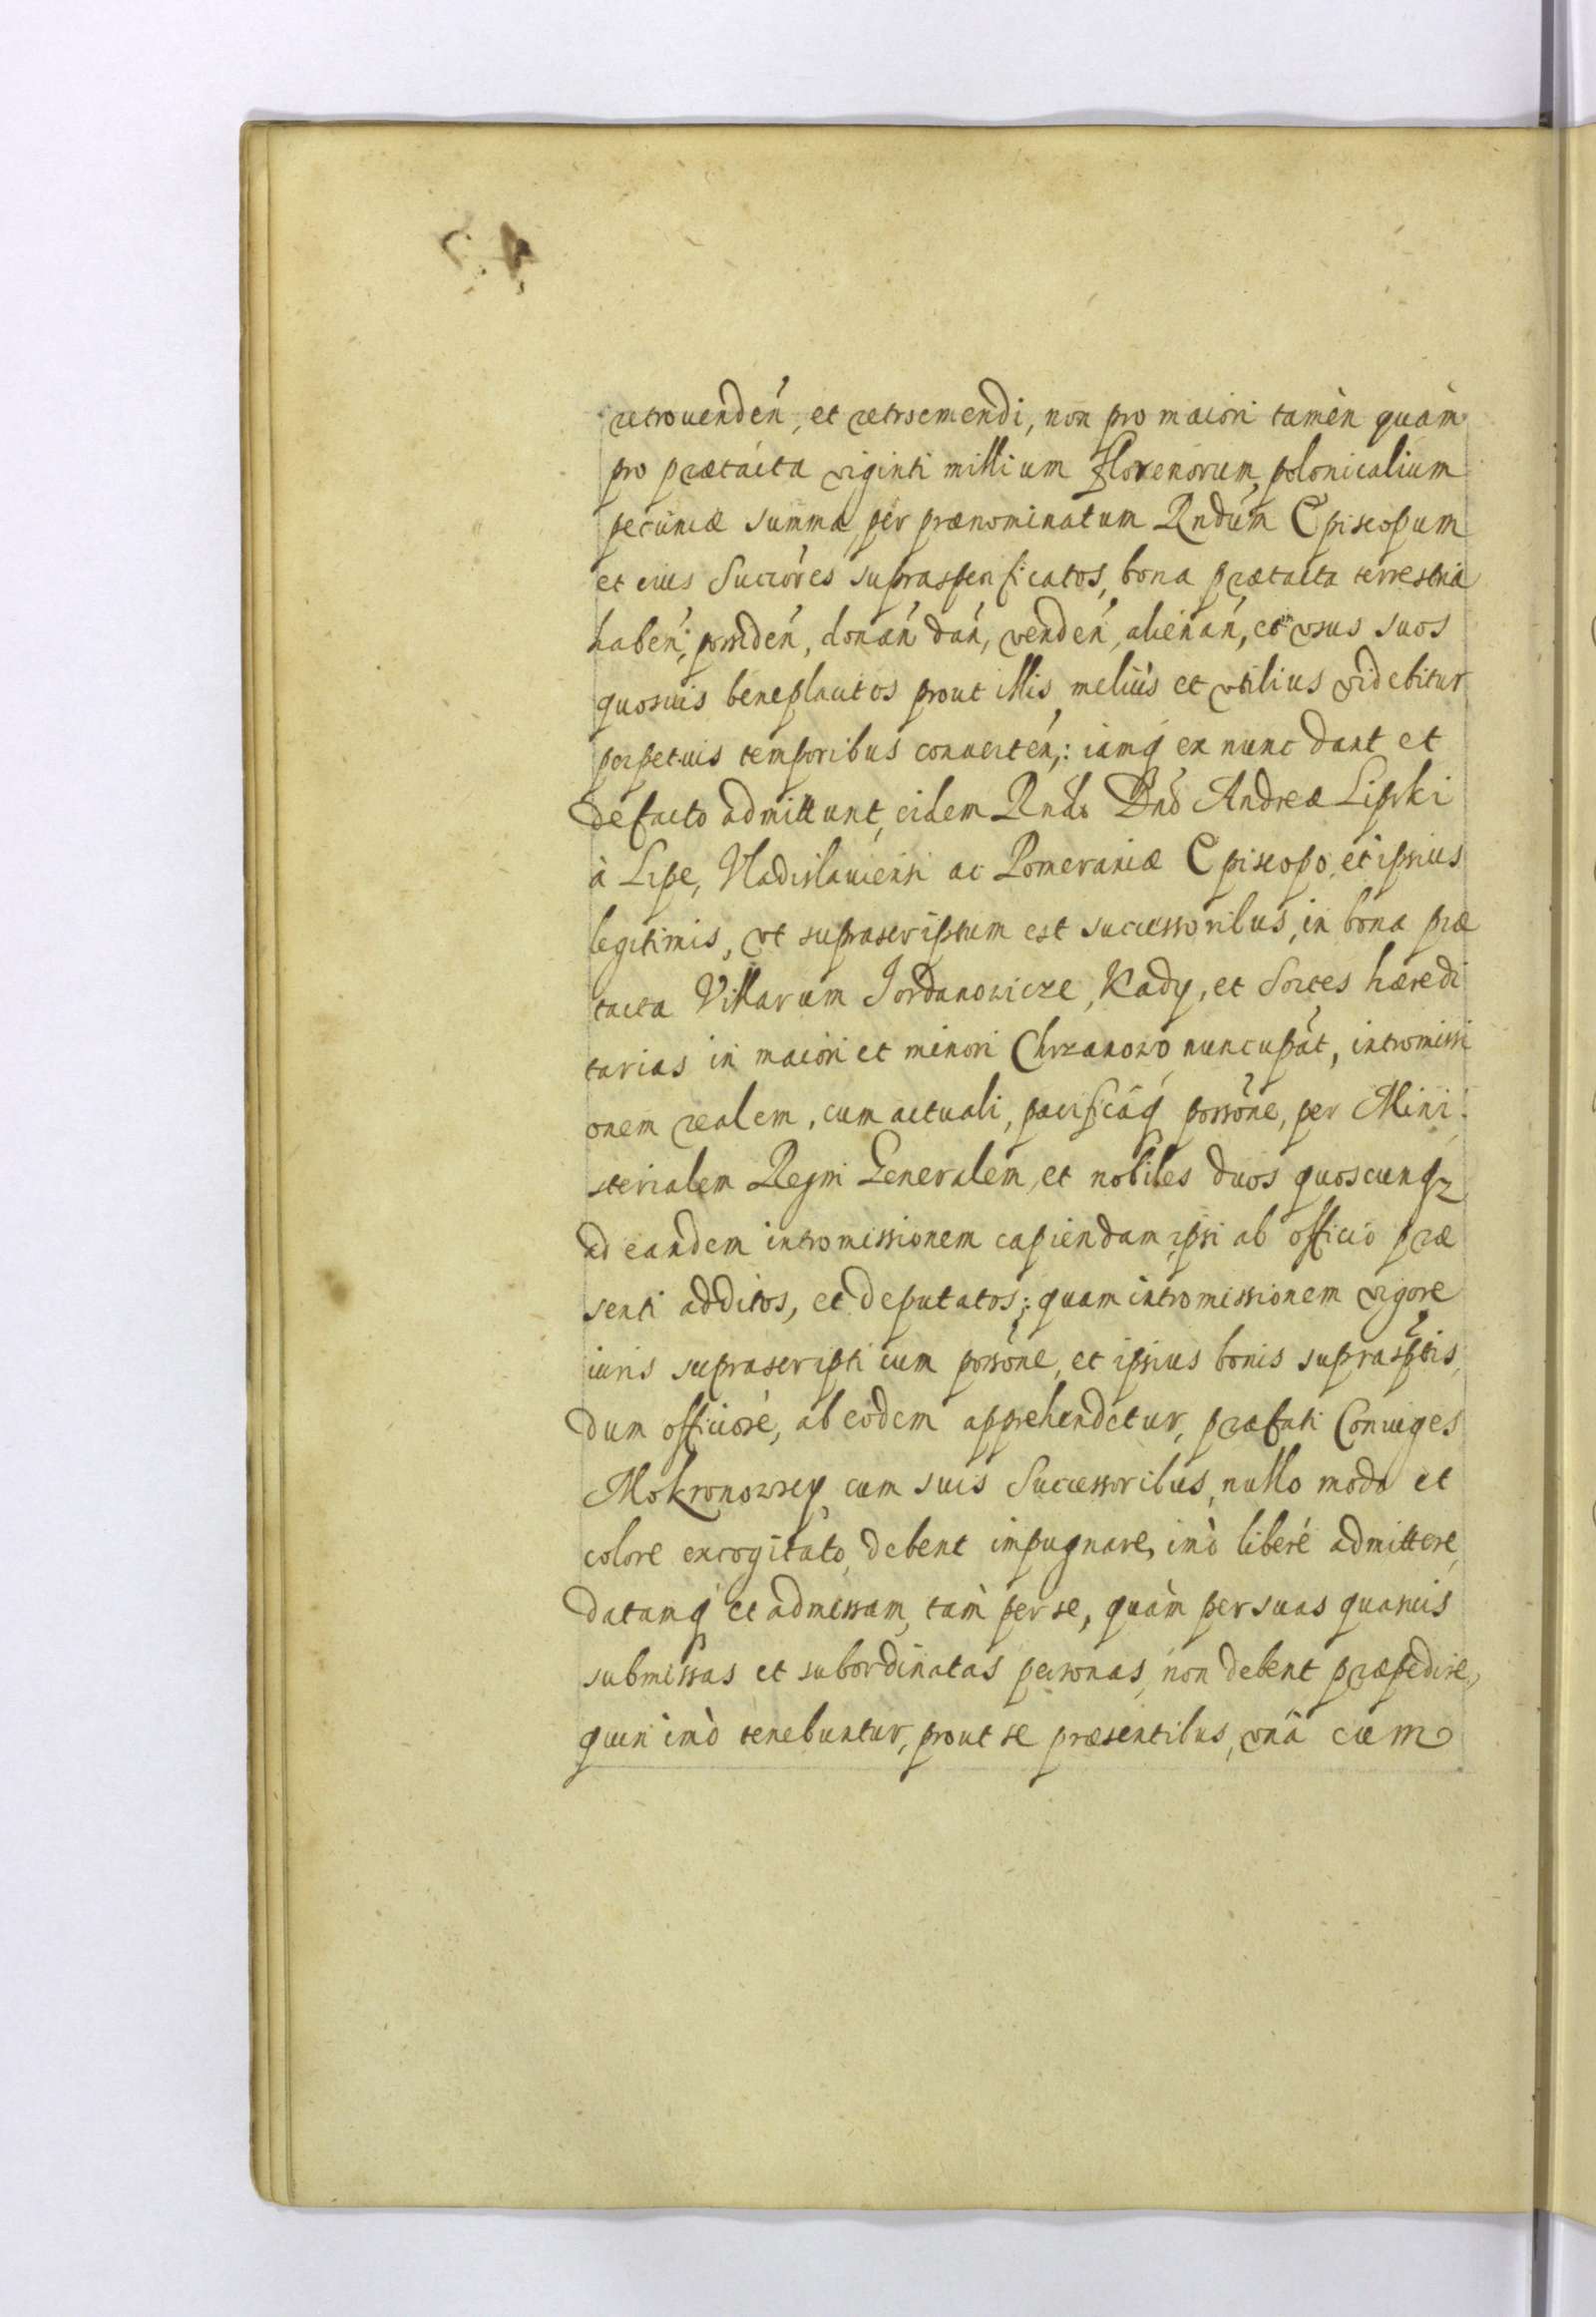 retrouenden, et retroemendi, non pro maiori tamèn quàm
pro prætacta viginti millium florenorum, polonicalium
pecuniæ summa, per prænominatum Rndum Episcopum
et eius Succores supraspecificatos, bona prætacta terrestria
haben, possiden, donan dan, venden, alienan, et in vsus suos
quosuis beneplacitos prout illis, meliùs et vtilius videbitur
perpetuis temporibus conuerten,: iamq ex nunc dant et
de facto admittunt, eidem Rndo Dno Andreæ Lipski
à Lipe, Vladislauiensi ac Pomeraniæ Episcopo, et ipsius
legitimis, vt suprascriptum est successoribus, in bona præ
tacta Villarum Jordanowicze, Kady, et Sortes hæredi
tarias in maiori et minori Chrzanowo nuncupat, intromissi
onem realem, cum actuali, pacificaq possone, per Mini
sterialem Regni Generalem, et nobiles duos quoscunqz
ad eandem intromissionem capiendam ipsi ab officio præ
senti additos, et deputatos; quam intromissionem vigore
iuris suprascripti cum possone, et ipsius bonis suprasptis,
dum officiosè, ab eodem apprehendetur, præfati Coniuges
Mokronowscy cum suis Successoribus, nullo modo et
colore excogitato, debent impugnare, imò liberè admittere,
datamq et admissam, tam per se, quàm per suas quasuis
submissas et subordinatas personas, non debent præpedire,
quin imò tenebuntur, prout se præsentibus, vnà cum